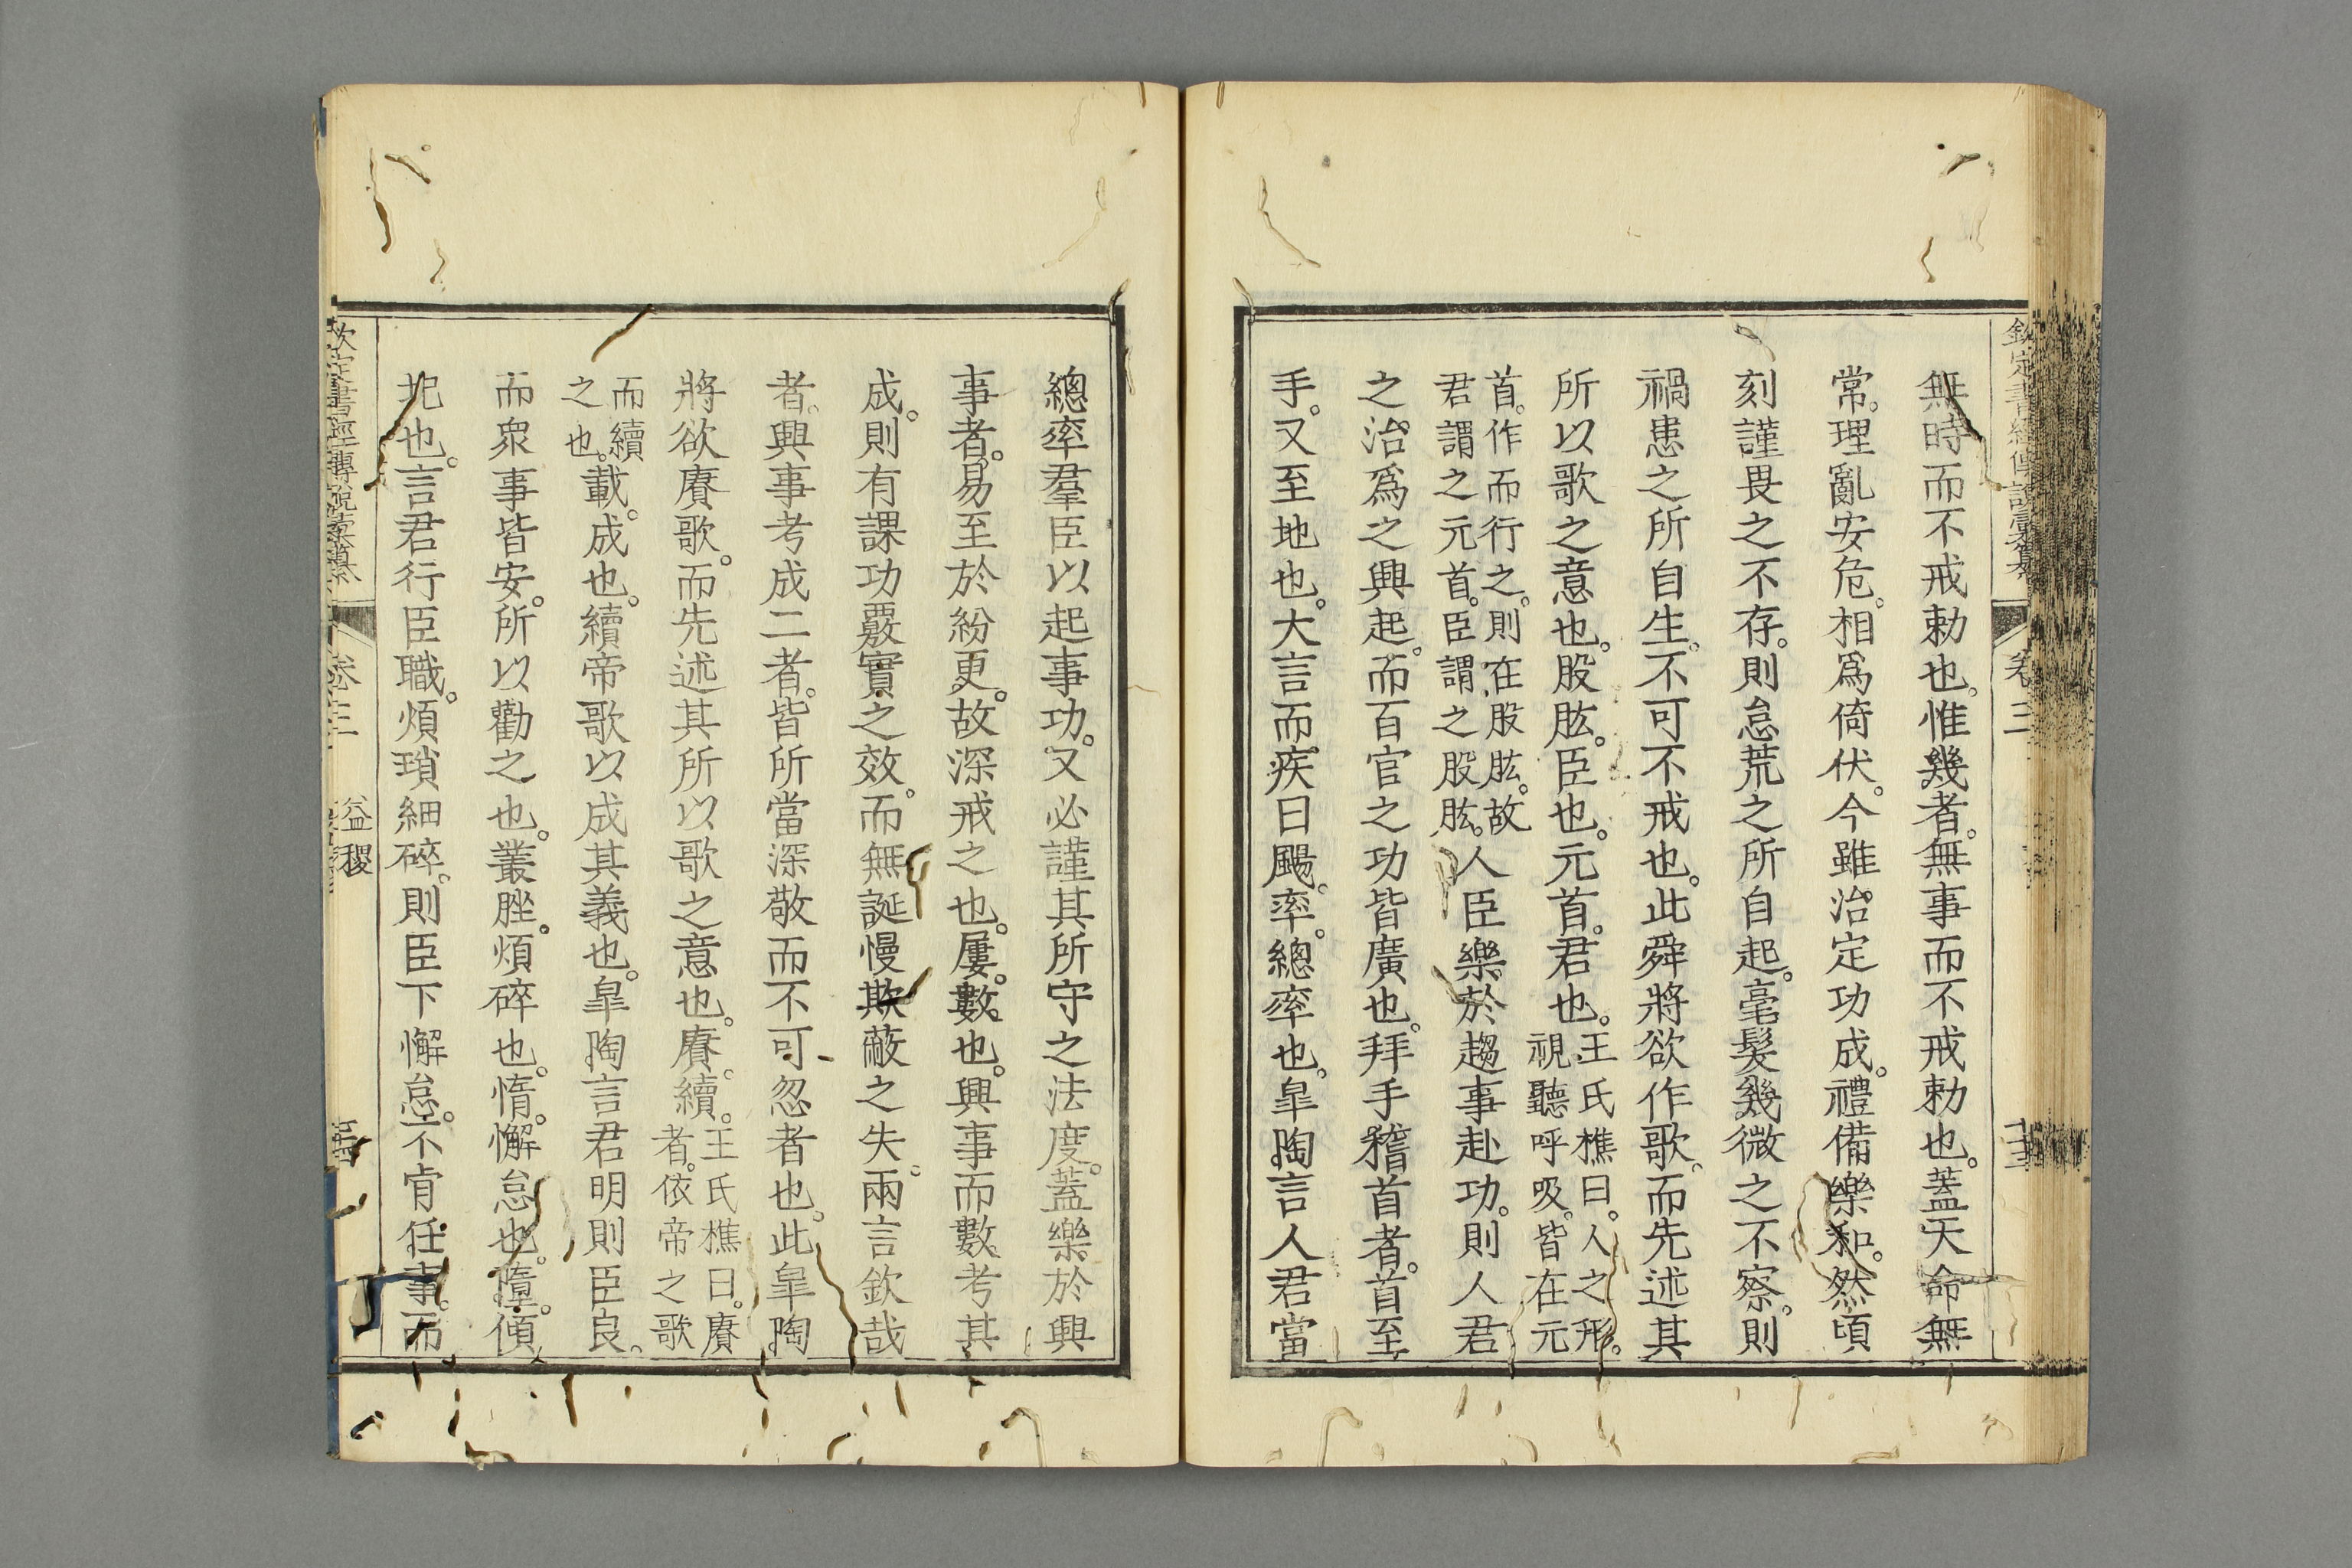 無時而不戒勅也。惟幾者。無事而不戒勅也。蓋天命無
常。理亂安危。相爲倚伏。今雖治定功成。禮備樂和。然頃
刻謹畏之不存。則怠荒之所自起。毫髮幾微之不察。則
禍患之所自生。不可不戒也。此舜將欲作歌。而先述其
所以歌之意也。股肱。臣也。元首。君也。王氏樵曰。人之形。視聽呼吸。皆在元
首。作而行之。則在股肱。故君謂之元首。臣謂之股肱。人臣樂於趨事赴功。則人君
之治爲之興起。而百官之功皆廣也。拜手稽首者。首至
手。又至地也。大言而疾曰颺。率。總率也。臯陶言人君當
總率羣臣以起事功。又必謹其所守之法度。蓋樂於興
事者。易至於紛更。故深戒之也。屢。數也。興事而數考其
成。則有課功覈實之效。而無誕慢欺蔽之失。兩言欽哉
者。興事考成二者。皆所當深敬而不可忽者也。此臯陶
將欲賡歌。而先述其所以歌之意也。賡。續。王氏樵曰。賡者。依帝之歌
而續之也。載。成也。續帝歌以成其義也。臯陶言君明則臣良。
而衆事皆安。所以勸之也。叢脞。煩碎也。惰。懈怠也。墮。傾
圯也。言君行臣職。煩瑣細碎。則臣下懈怠。不肯任事。而
欽定書經傳說彙纂
卷三
益稷